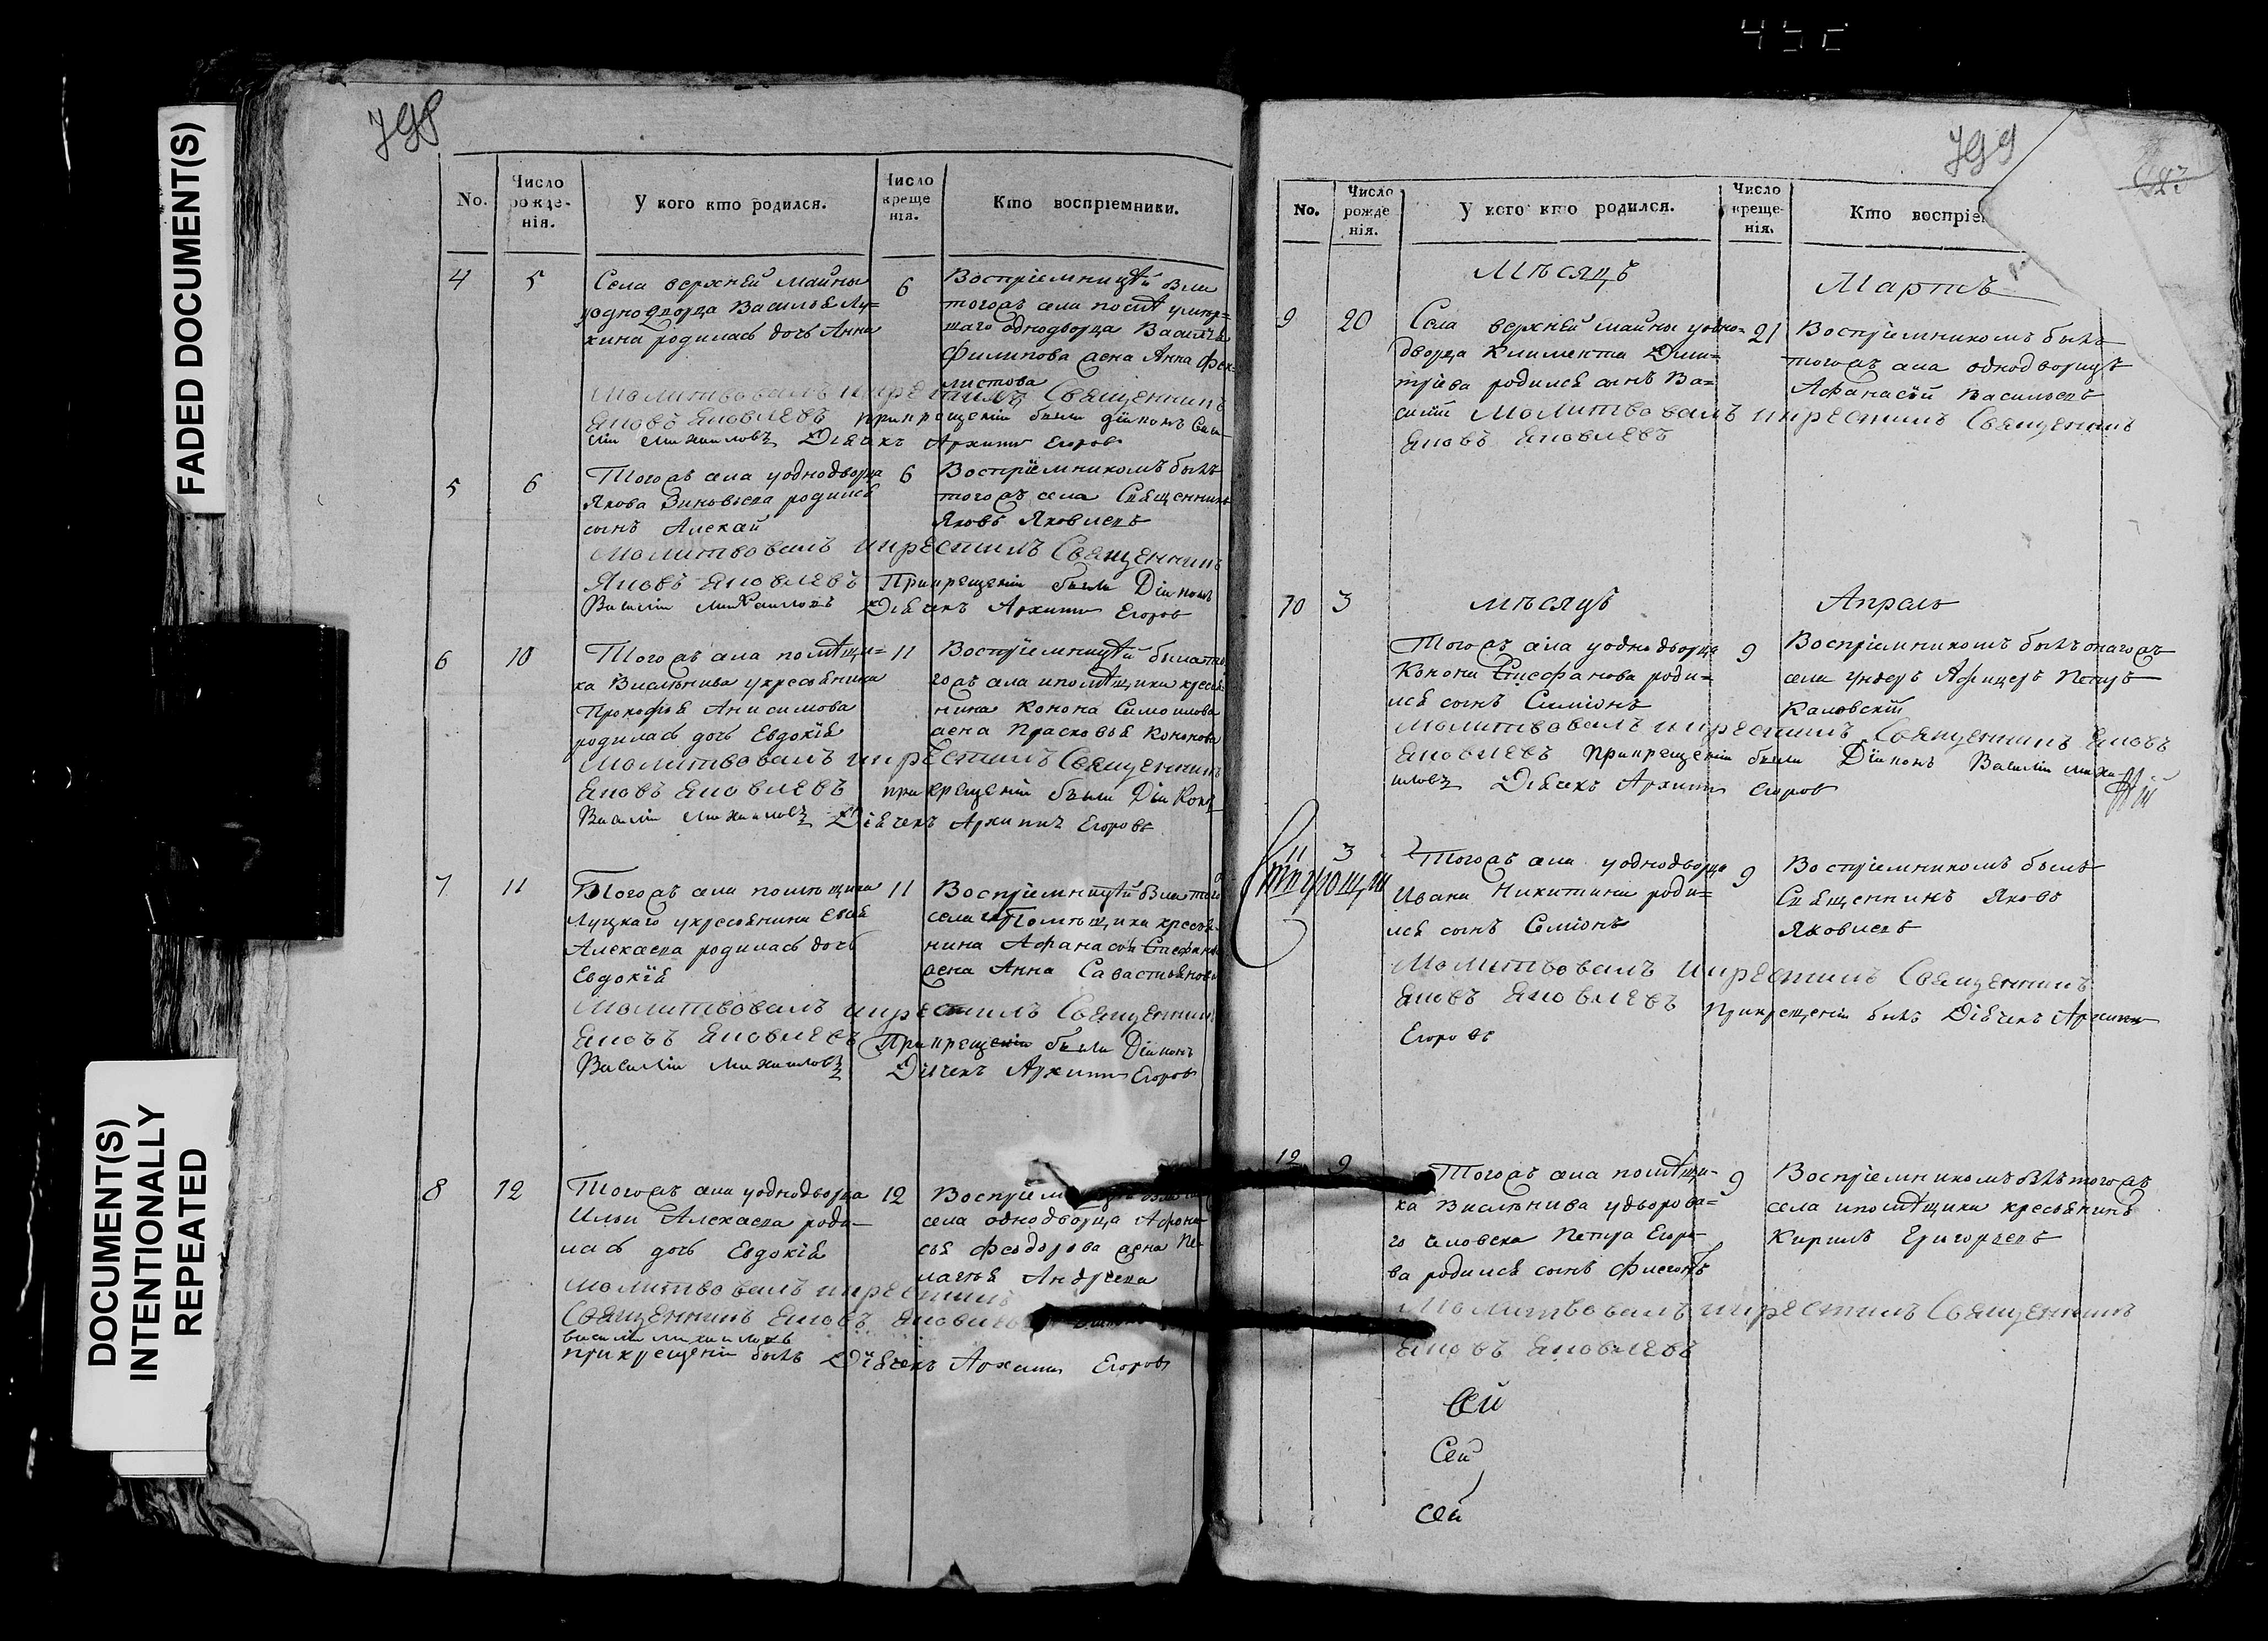 FADED DOCUMENT(S)
DOCUMENT(S)
INTENTIONALLY
REPEATED
798
No.
Число рожденія.
У кого кто родился.
Число крещенія.
Кто воспріемники.
4
5
Села верхней майны
уоднодворца Василья Лу=
кина родилась дочь Анна
6
тогожъ села
шаго однодворца Василья
Филипова жена Анна Фек=
листова
молитвовалъ икрестилъ Священникъ
Яковъ Яковлевъ прикрещеніи были діяконъ Васи
лій Михаиловъ Дьячекъ Архипъ Егоровъ
5
6
Тогожъ села уоднодворца
Якова Зиновьева родился
сынъ Алекѣй
6
Воспріемникомъ былъ
тогожъ села Священникъ
Яковъ Яковлевъ
Молитвовалъ икрестилъ Священникъ
Яковъ Яковлевъ Прикрещеніи были Діяконъ
Василій Михаиловъ Дьячекъ Архипъ Егоровъ
6
10
Тогожъ села помѣщи=
ка укресьянина
Прокофья Анисимова
родилась дочь Евдокія
11
Воспріемницей была то
гожъ села ипомѣщика кресья
нина Конона Самоилова
жена Прасковья Кононова
молитвовалъ икрестилъ Священникъ
Яковъ Яковлевъ прикрещеніи были Діяконъ
Василій Михаиловъ Дьячекъ Архипъ Егоровъ
7
11
Тогожъ села помѣщика
Луцкаго укресьянина
Алексева родилась дочь
Евдокія
11
Воспріемницей была того
села ипомѣщика кресья
нина Афанасья Стефанова
жена Анна Савастьянова
Молитвовалъ икрестилъ Священникъ
Яковъ Яковлевъ Прикрещеніи были Діяконъ
Василій Михаиловъ Дьячекъ Архипъ Егоровъ
8
12
Тогожъ села уоднодворца
Ильи Алексева роди-
лась дочь Евдокія
12
села однодворца Афона
сья Феодорова жена Пе
лагея Андреева
молитвовалъ икрестилъ
Священникъ Яковъ Яковлевъ
василій михаиловъ
прикрещеніи былъ Дьячекъ Архипъ Егоровъ
799
No.
Число рожденія.
У кого кто родился.
Число крещенія.
Кто воспріе
Мѣсяцъ
Мартъ
9
20
Села верхней майны уодно=
дворца Климента Дми=
тріева родился сынъ Ва=
силій
21
Воспріемникомъ былъ
тогожъ села однодворецъ
Афанасѣй Васильевъ
Молитвовалъ икрестилъ Священникъ
Яковъ Яковлевъ
мѣсяцъ
Апрель
10
3
Тогожъ села уоднодворца
Конона Стефанова роди=
лся сынъ Симіонъ
9
Воспріемникомъ былъ онагожъ
села Ундеръ Афицеръ Петръ
Каловскій
молитвовалъ икрестилъ Священникъ Яковъ
Яковлевъ прикрещеніи были Діяконъ Василій Миха
иловъ Дьячекъ Архипъ Егоровъ
11
3
Тогожъ села уоднодворца
Ивана Никитина роди=
лся сынъ Семіонъ
9
Воспріемникомъ былъ
Священникъ Яковъ
Яковлевъ
Молитвовалъ икрестилъ Священникъ
Яковъ Яковлевъ прикрещеніи былъ Дьячекъ Архипъ
Егоровъ
12
9
Тогожъ села помѣщи-
ка удворова=
го человека Петра Егоро
ва родился сынъ
9
Воспріемникомъ былъ тогожъ
села ипомѣщика кресьянинъ
Кирилъ Григорьевъ
Молитвовалъ икрестилъ Священникъ
Яковъ Яковлевъ
Сей
Сей
сей